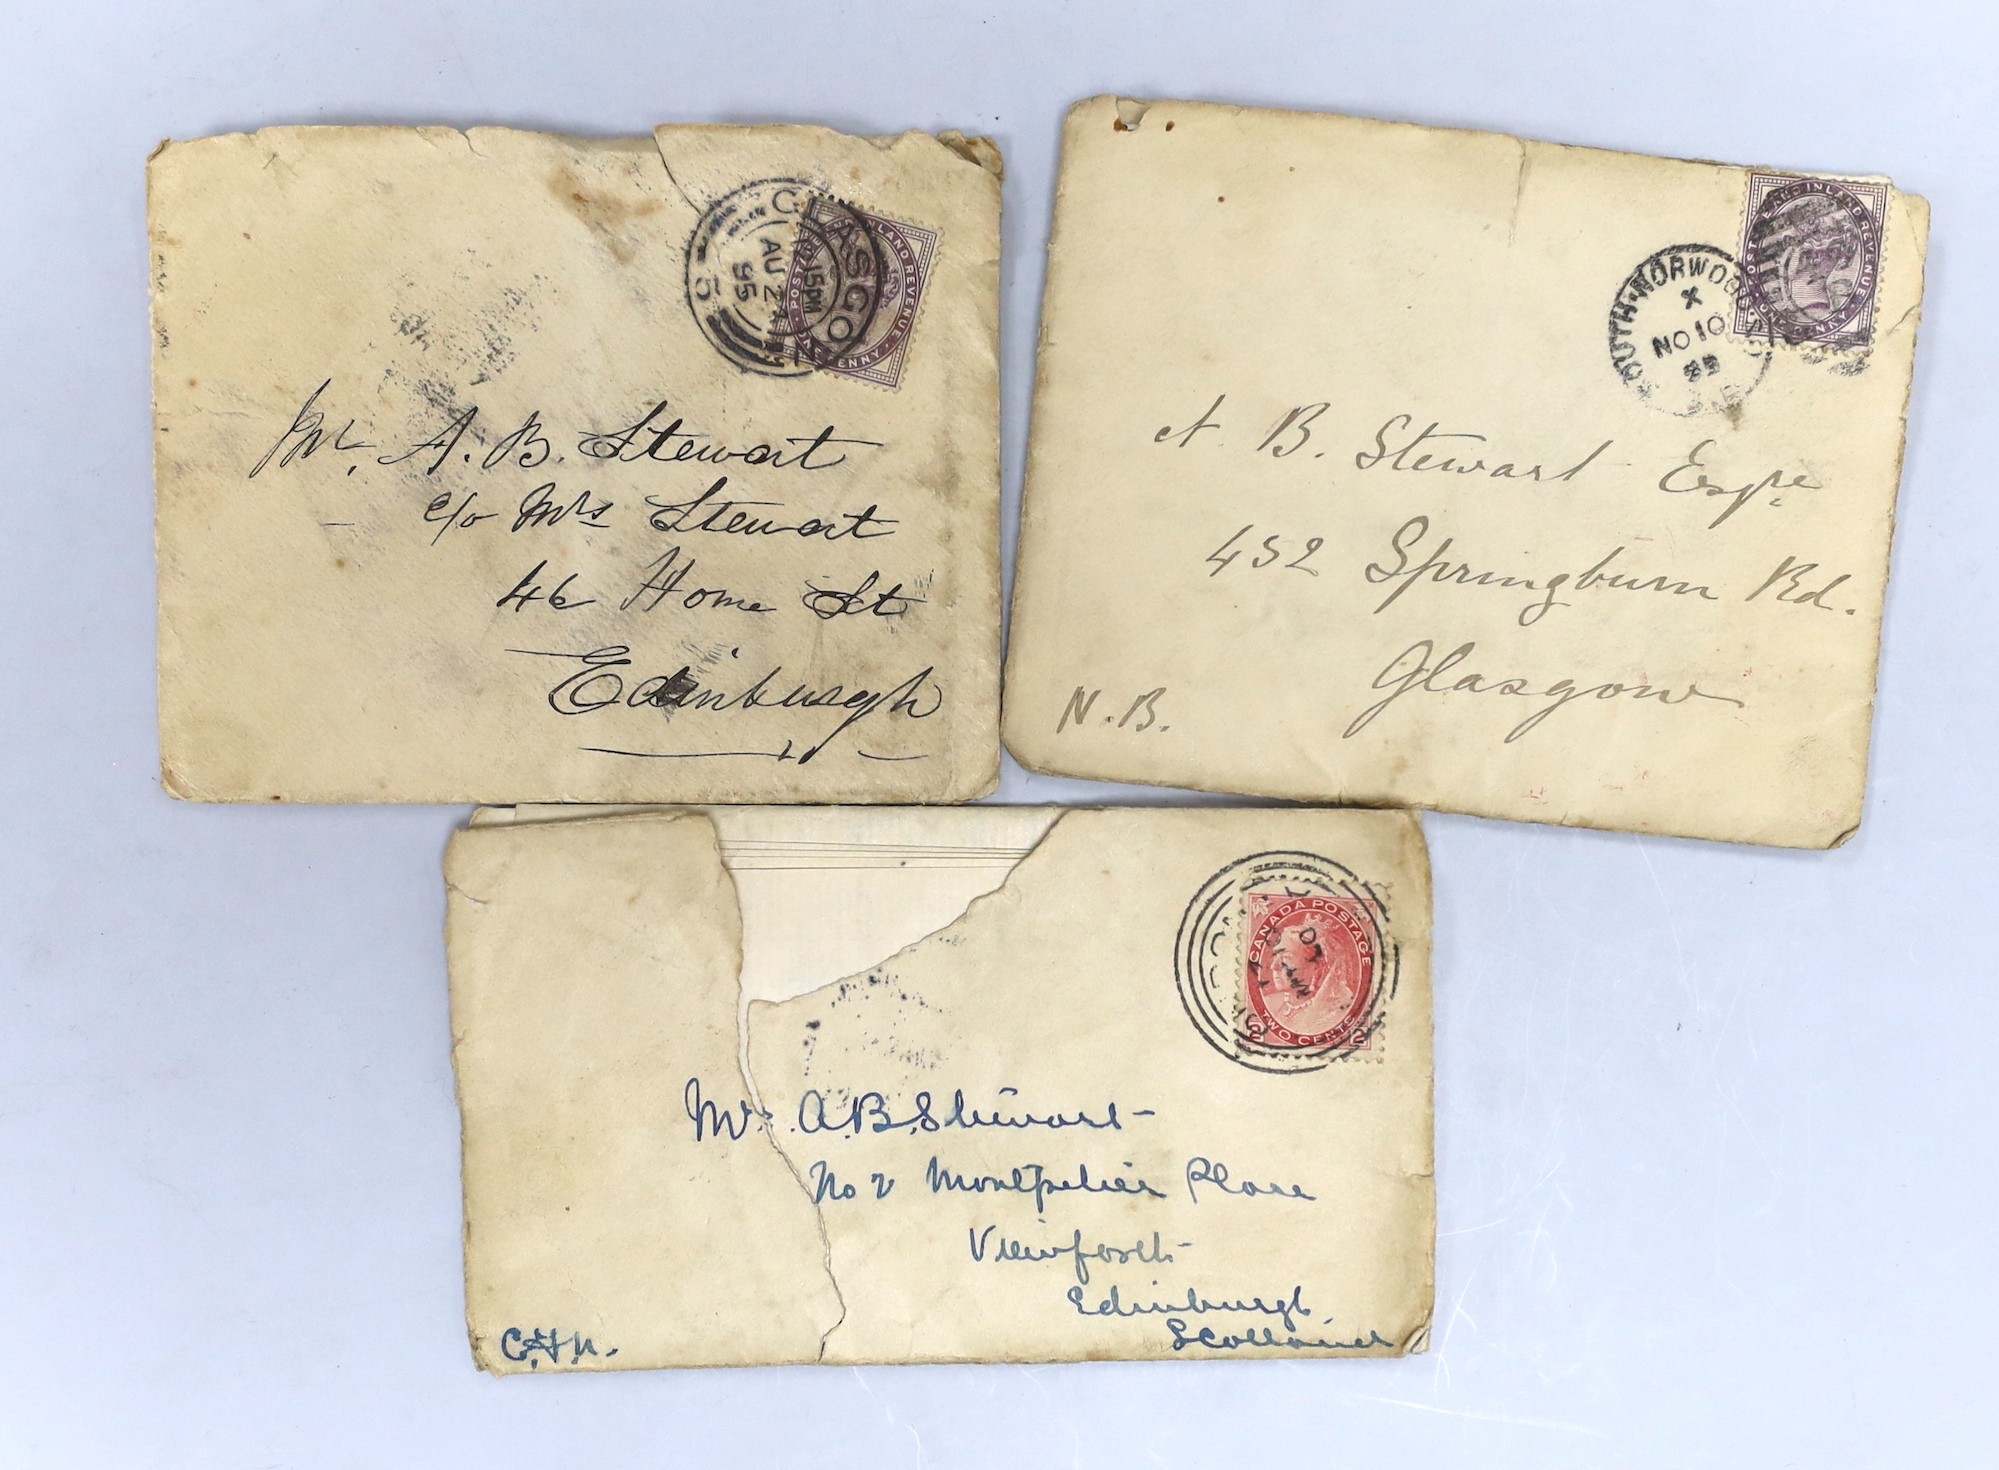 GLASGOW
15PM
AU 2
95
5
POSTAGE AND INLAND REVENUE
ONE PENNY
Mr. A. B. Stewart
c/o Mrs Stewart
46 Home St
Edinburgh
SOUTH-NORWOOD
X
NO 10
POSTAGE AND INLAND REVENUE
ONE PENNY
A B. Stewart Esqre
452 Springburn Rd.
Glasgow
N.B.
CANADA POSTAGE
TWO CENTS
2 2
Mrs. A. B. Stewart
No 2 Montpelier Place
Viewforth
Edinburgh
Scotland